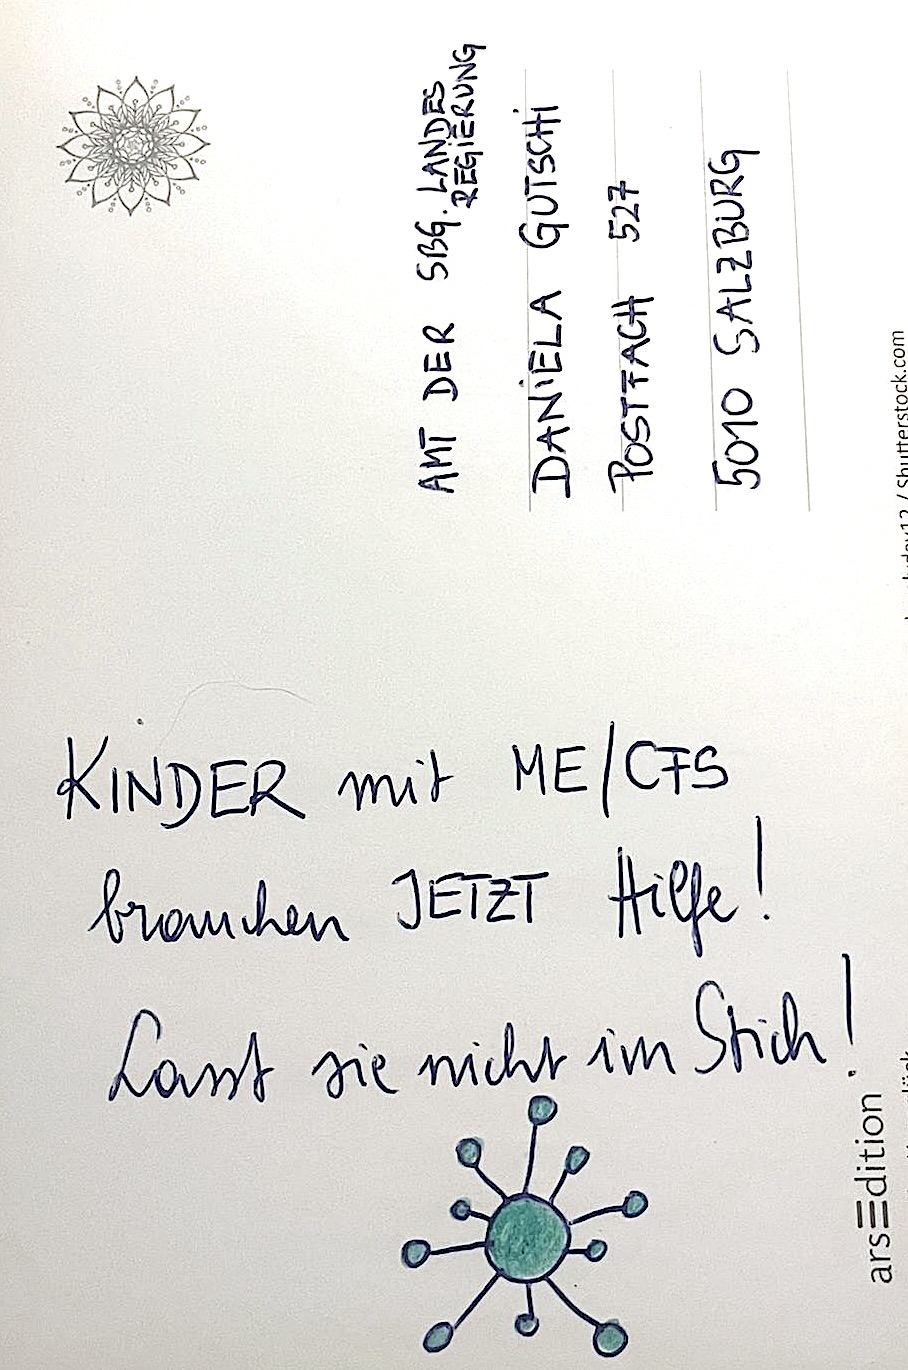 AMT DER SBG. LANDES
REGIERUNG
DANIELA GUTSCHI
POSTFACH 527
5010 SALZBURG
KINDER mit ME/CFS
brauchen JETZT Hilfe!
Lasst sie nicht im Stich!
arsEdition
/ Shutterstock.com